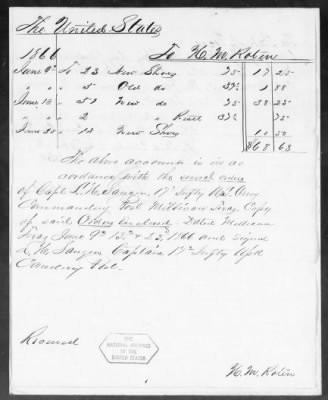 The United States
1866 To H. M. Roten
June 9th To 23 New Shoes 75 17 25
" " " 5 Old do 37½ 1 88
June 13 " 51 New do 75 38 25
" " " 2 " Reset 37½ 75
June 23 " 14 New Shoes 10 50
$68 63
The above accounts is in ac
cordance with the verval orders
of Capt L. H. Sanger, 17th Infty U.S. Army
Commanding Post Millican Texas. Copy
of said Orders enclosed. Dated Millican
Texas June 9th 13th & 23d 1866 and signed
L. H. Sanger Captain 17th Infty USA
Comdg
Received
THE
NATIONAL ARCHIVES
OF THE
UNITED STATES
H. M. Roten